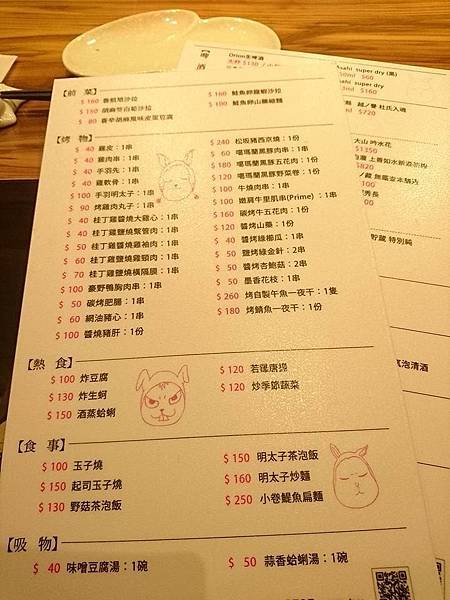 【前　菜】
$160 番茄塔沙拉
$180 胡麻雪白菇沙拉
$80 香辛胡麻風味皮蛋豆腐
$160 鮭魚卵龍蝦沙拉
$190 鮭魚卵山藥細麵
【烤　物】
$40 雞皮：1串
$40 雞肉串：1串
$40 手羽先：1串
$40 雞軟骨：1串
$100 手羽明太子：1串
$90 烤雞肉丸子：1串
$40 桂丁雞醬燒大雞心：1串
$40 桂丁雞鹽燒繫管肉：1串
$50 桂丁雞醬燒雞袖肉：1串
$60 桂丁雞鹽燒雞頸肉：1串
$70 桂丁雞鹽燒橫隔膜：1串
$100 豪野鴨胸肉串：1串
$50 碳烤肥腸：1串
$60 網油豬心：1串
$100 醬燒豬肝：1份
$240 松坂豬西京燒：1份
$60 噶瑪蘭黑豚肉串：1串
$120 噶瑪蘭黑豚五花肉：1份
$120 噶瑪蘭黑豚野菜卷：1份
$100 牛燒肉串：1串
$100 嫩肩牛里肌串(Prime)：1串
$160 碳烤牛五花肉：1份
$120 醬烤山藥：1份
$40 醬烤綠櫛瓜：1串
$50 鹽烤綠金針：2串
$50 醬烤杏鮑菇：2串
$50 墨香花枝：1串
$260 烤自製午魚一夜干：1隻
$180 烤鯖魚一夜干：1份
【熱　食】
$100 炸豆腐
$130 炸生蚵
$150 酒蒸蛤蜊
$120 若雞唐揚
$120 炒季節蔬菜
【食　事】
$100 玉子燒
$150 起司玉子燒
$130 野菇茶泡飯
$150 明太子茶泡飯
$160 明太子炒麵
$250 小卷鯷魚扁麵
【吸　物】
$40 味噌豆腐湯：1碗
$50 蒜香蛤蜊湯：1碗
【啤酒
Orion生啤酒
Asahi super dry (黑)
$60
super dry
$160
$720
大山 吟水花
$1350
$820
貯藏 特別純
泡清酒